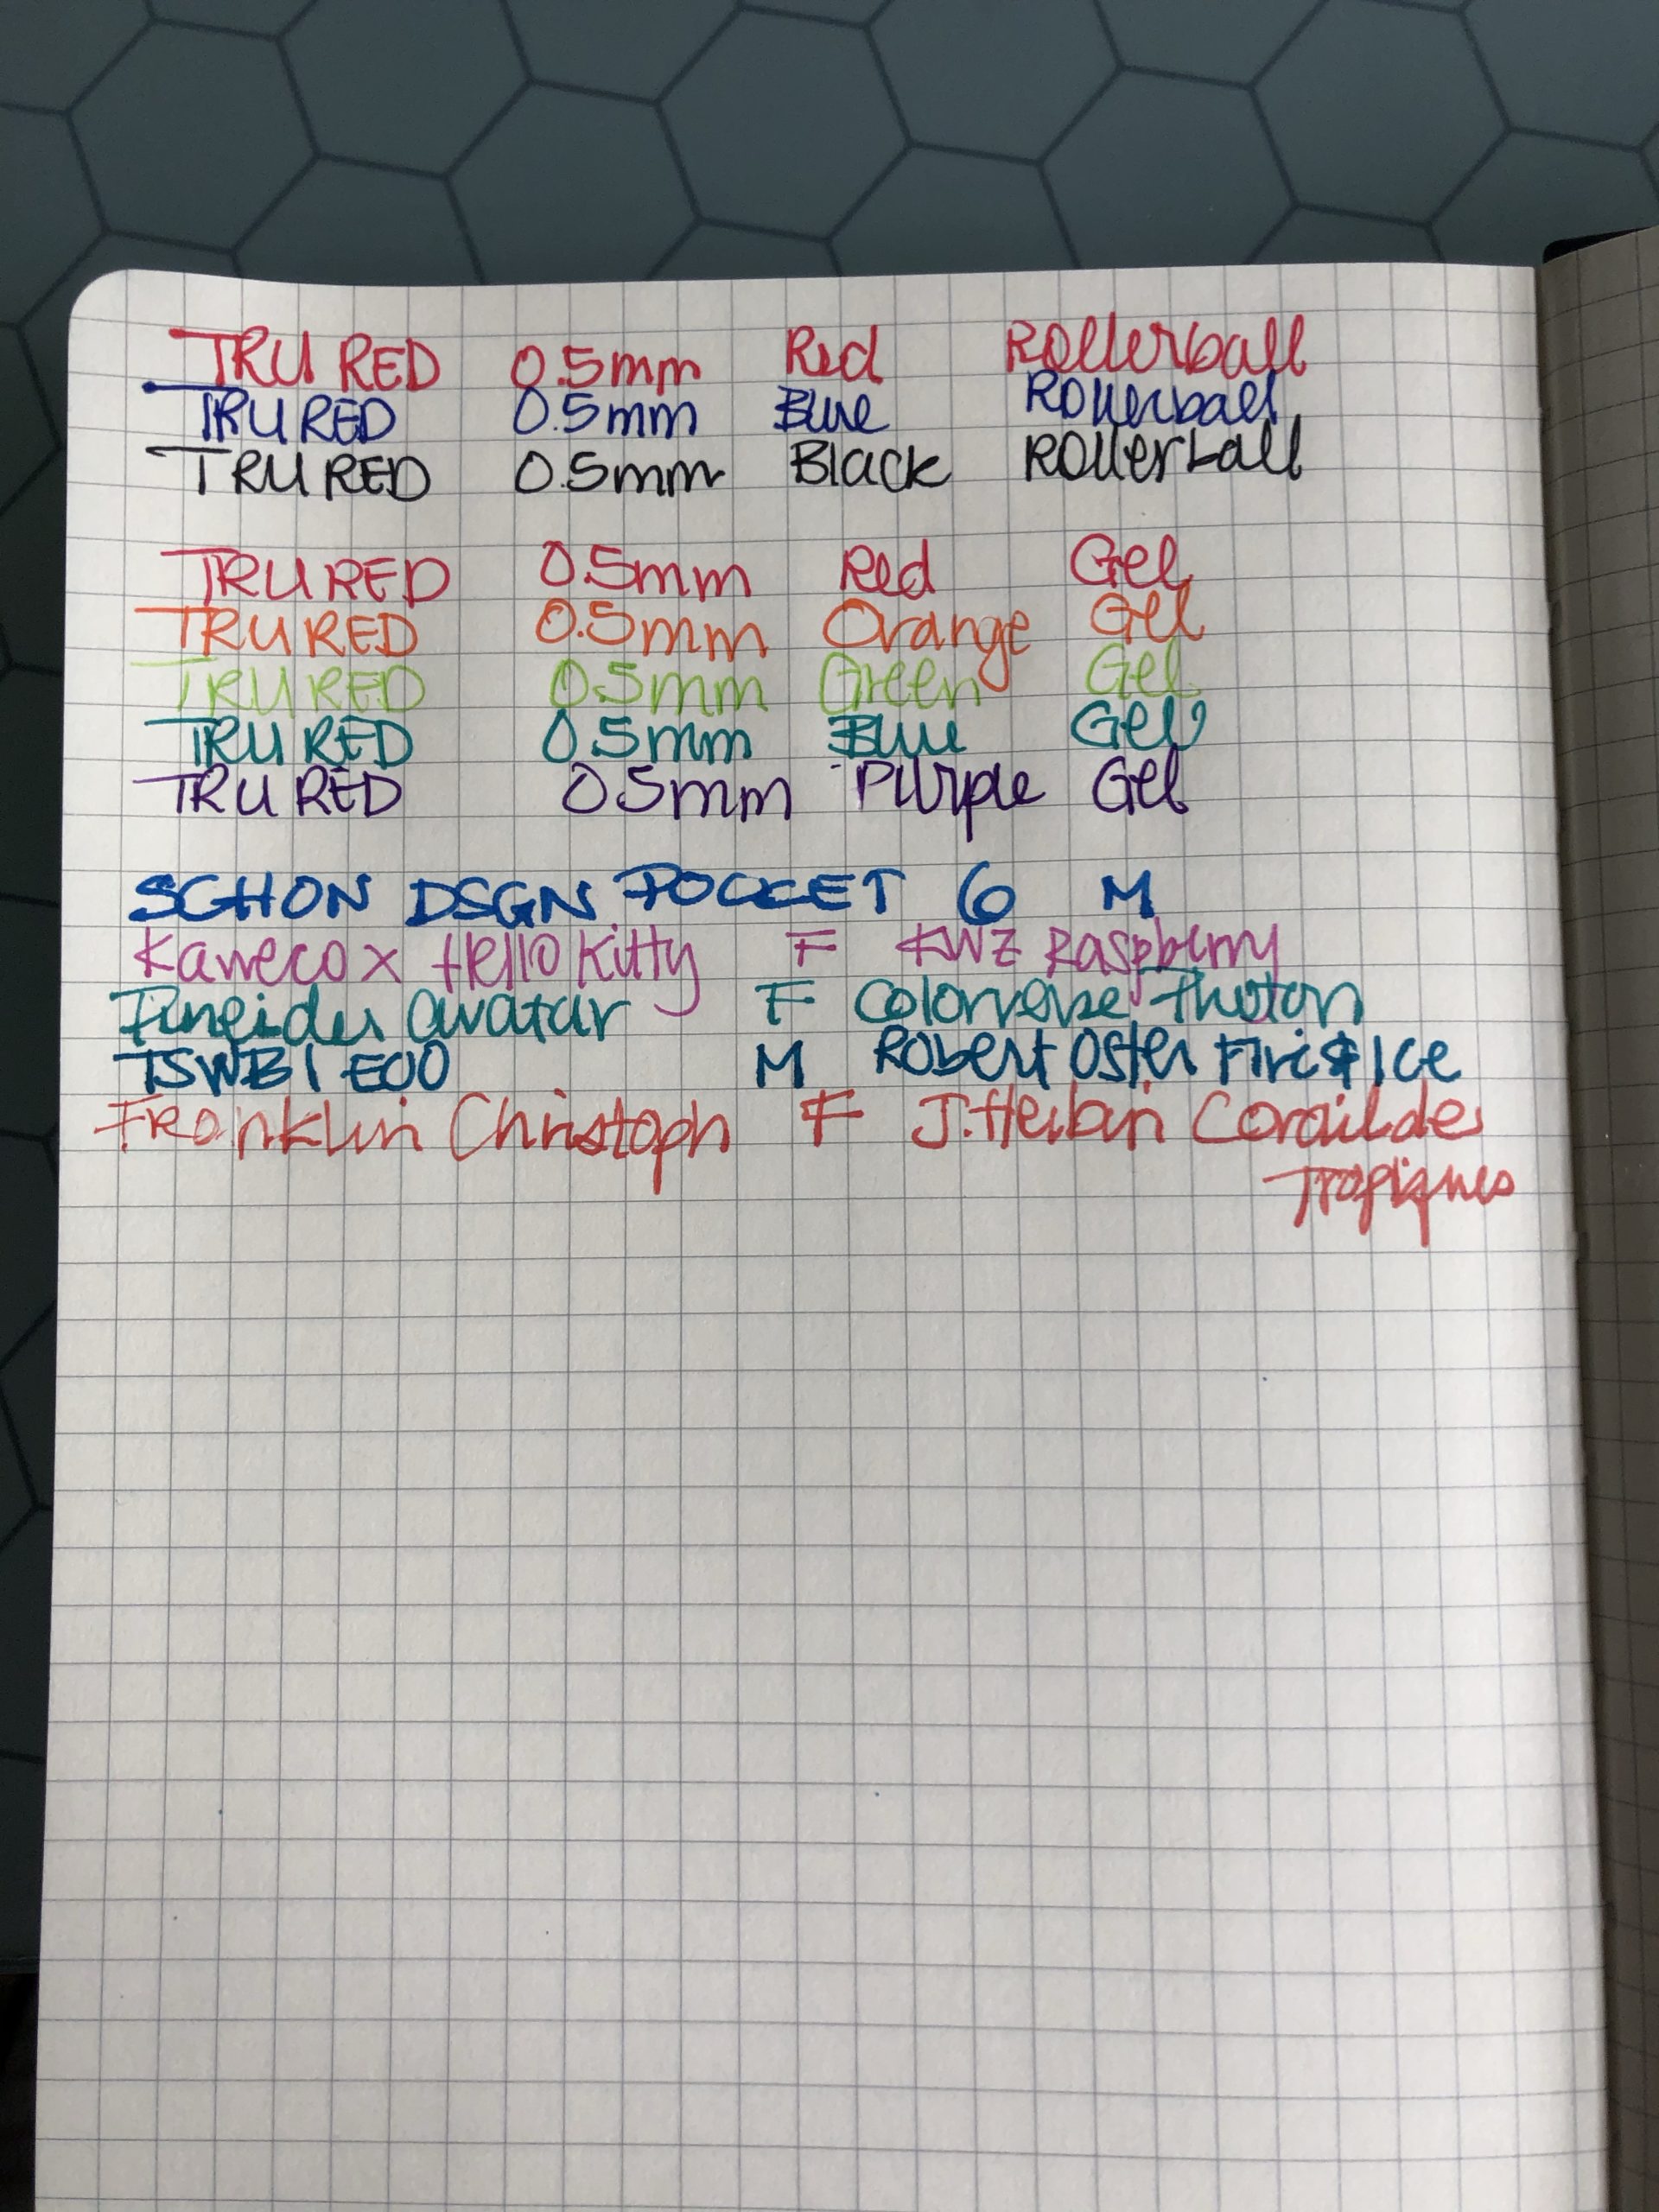 TRU RED 0.5mm Red Rollerball
TRU RED 0.5mm Blue Rollerball
TRU RED 0.5mm Black Rollerball
TRU RED 0.5mm Red Gel
TRU RED 0.5mm Orange Gel
TRU RED 0.5mm Green Gel
TRU RED 0.5mm Blue Gel
TRU RED 0.5mm Purple Gel
SCHON DSGN POCKET 6 M
Kaweco x Hello Kitty F KWZ Raspberry
Pineider Avatar F Colorverse Photon
TSWBI ECO M Robert Oster Fire & Ice
Franklin Christoph F J. Herbin Corail des
Tropiques